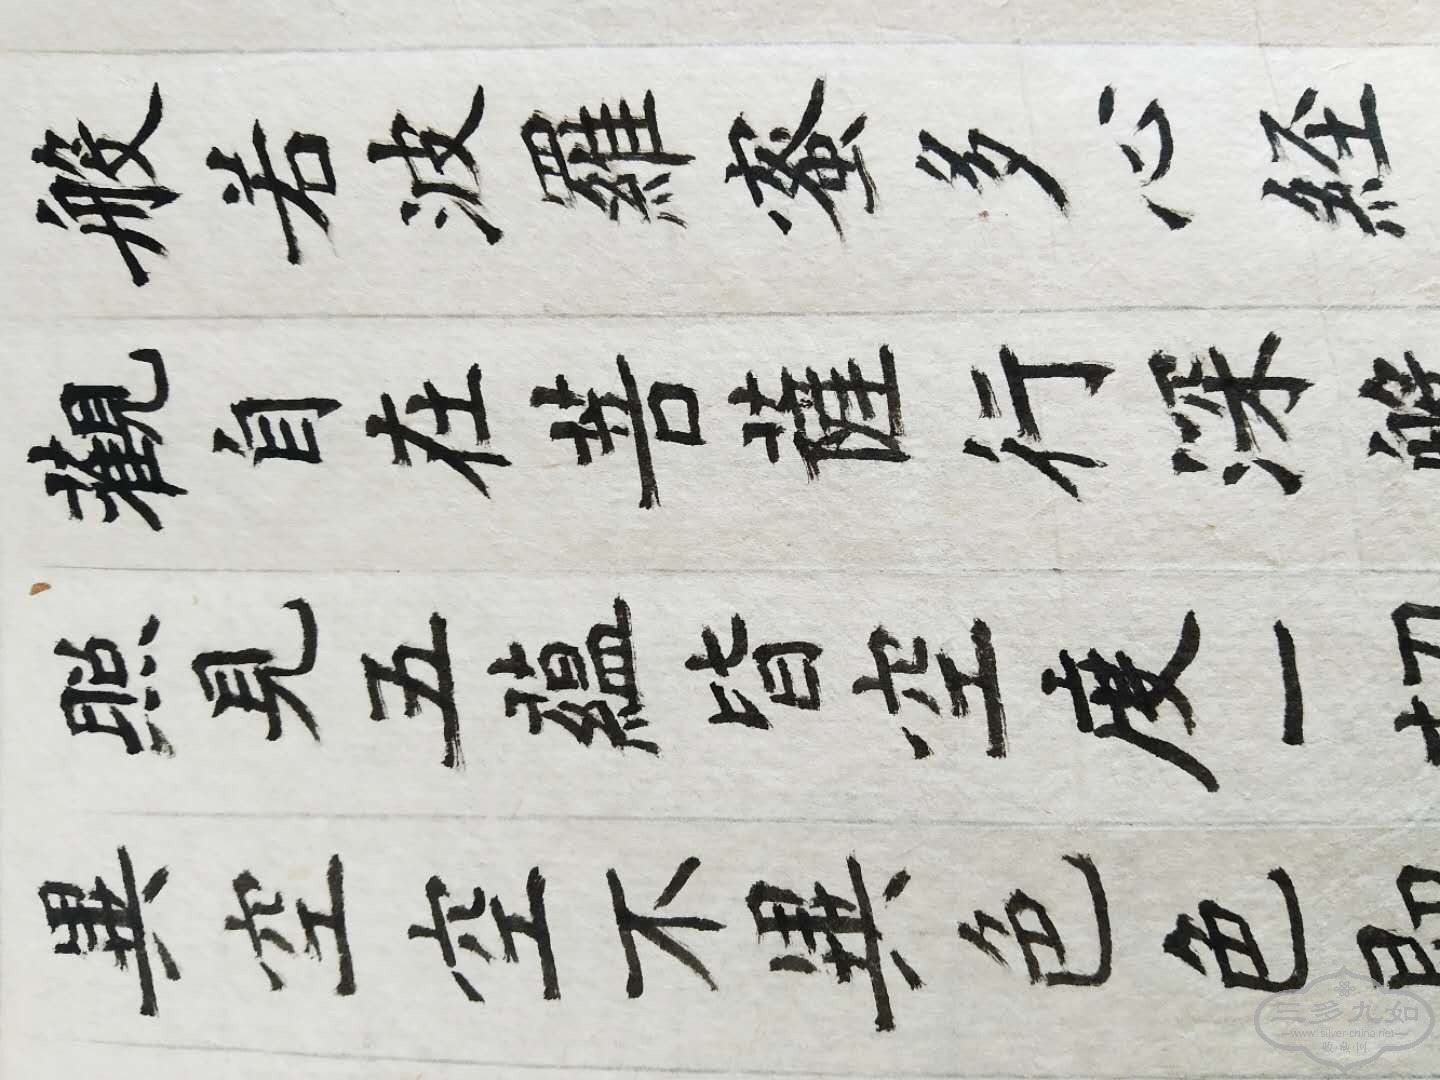 般若波羅蜜多心經
觀自在菩薩行深般
照見五蘊皆空度一切
異空空不異色色即
三多九如
www.silver-china.net
收·藏·网